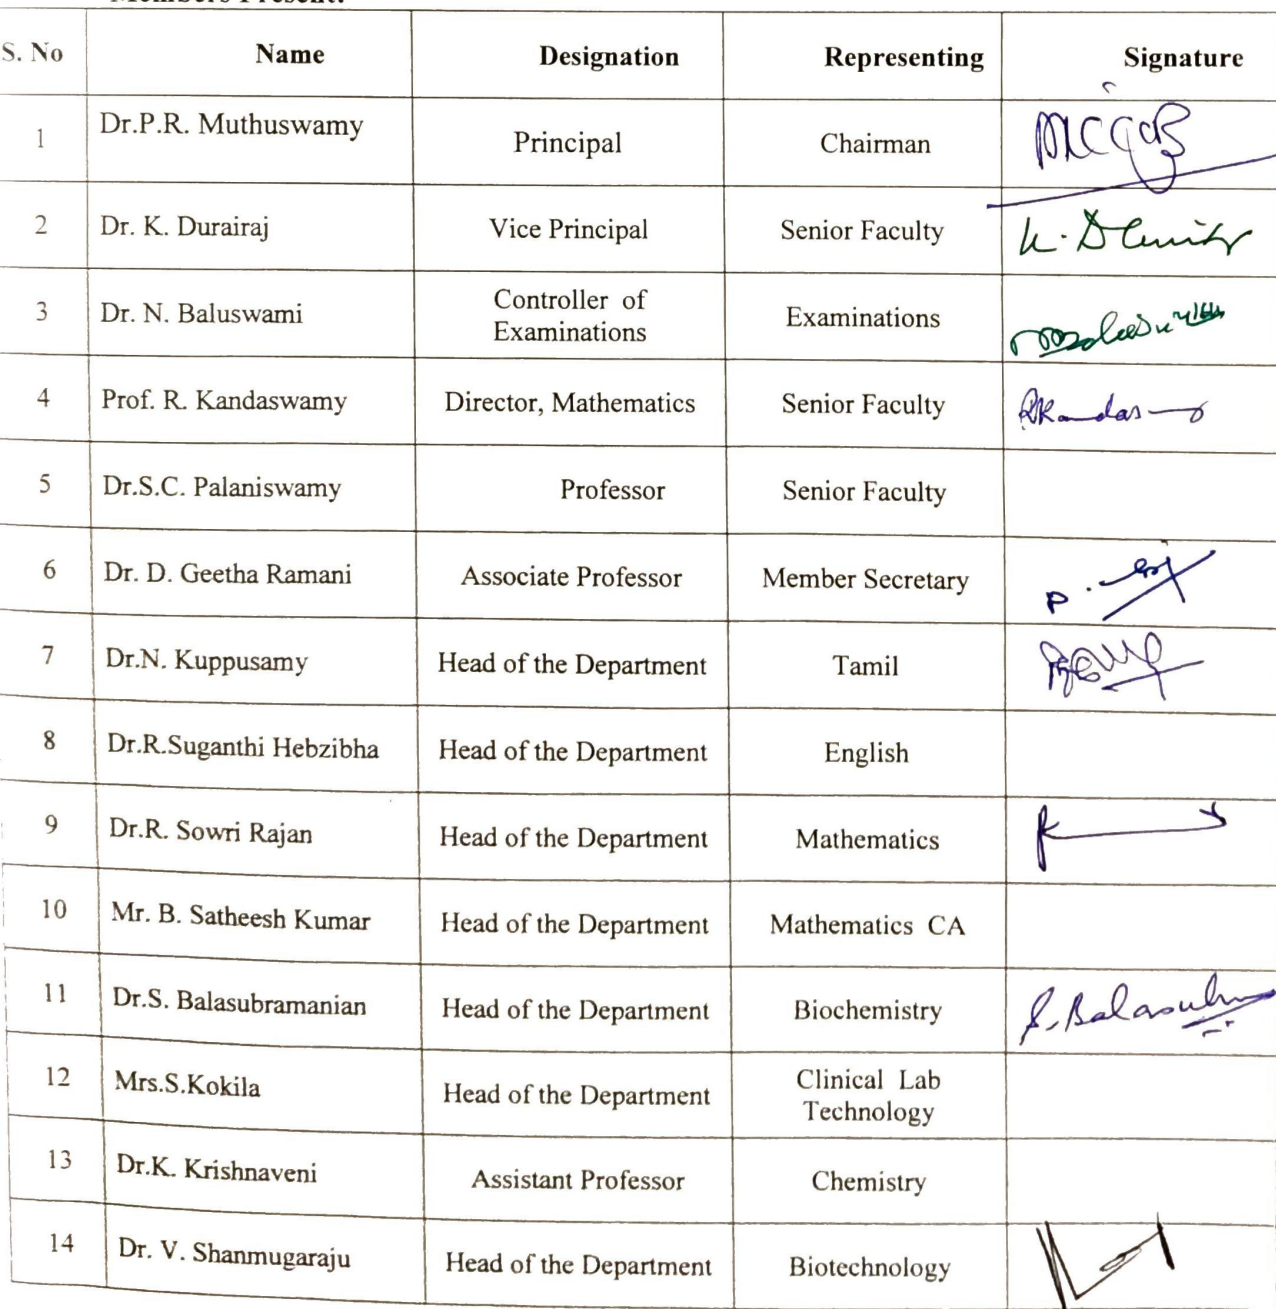 Members Present:
S. No Name Designation Representing Signature
1 Dr.P.R. Muthuswamy Principal Chairman
2 Dr. K. Durairaj Vice Principal Senior Faculty
3 Dr. N. Baluswami Controller of Examinations Examinations
4 Prof. R. Kandaswamy Director, Mathematics Senior Faculty
5 Dr.S.C. Palaniswamy Professor Senior Faculty
6 Dr. D. Geetha Ramani Associate Professor Member Secretary
7 Dr.N. Kuppusamy Head of the Department Tamil
8 Dr.R.Suganthi Hebzibha Head of the Department English
9 Dr.R. Sowri Rajan Head of the Department Mathematics
10 Mr. B. Satheesh Kumar Head of the Department Mathematics CA
11 Dr.S. Balasubramanian Head of the Department Biochemistry
12 Mrs.S.Kokila Head of the Department Clinical Lab Technology
13 Dr.K. Krishnaveni Assistant Professor Chemistry
14 Dr. V. Shanmugaraju Head of the Department Biotechnology